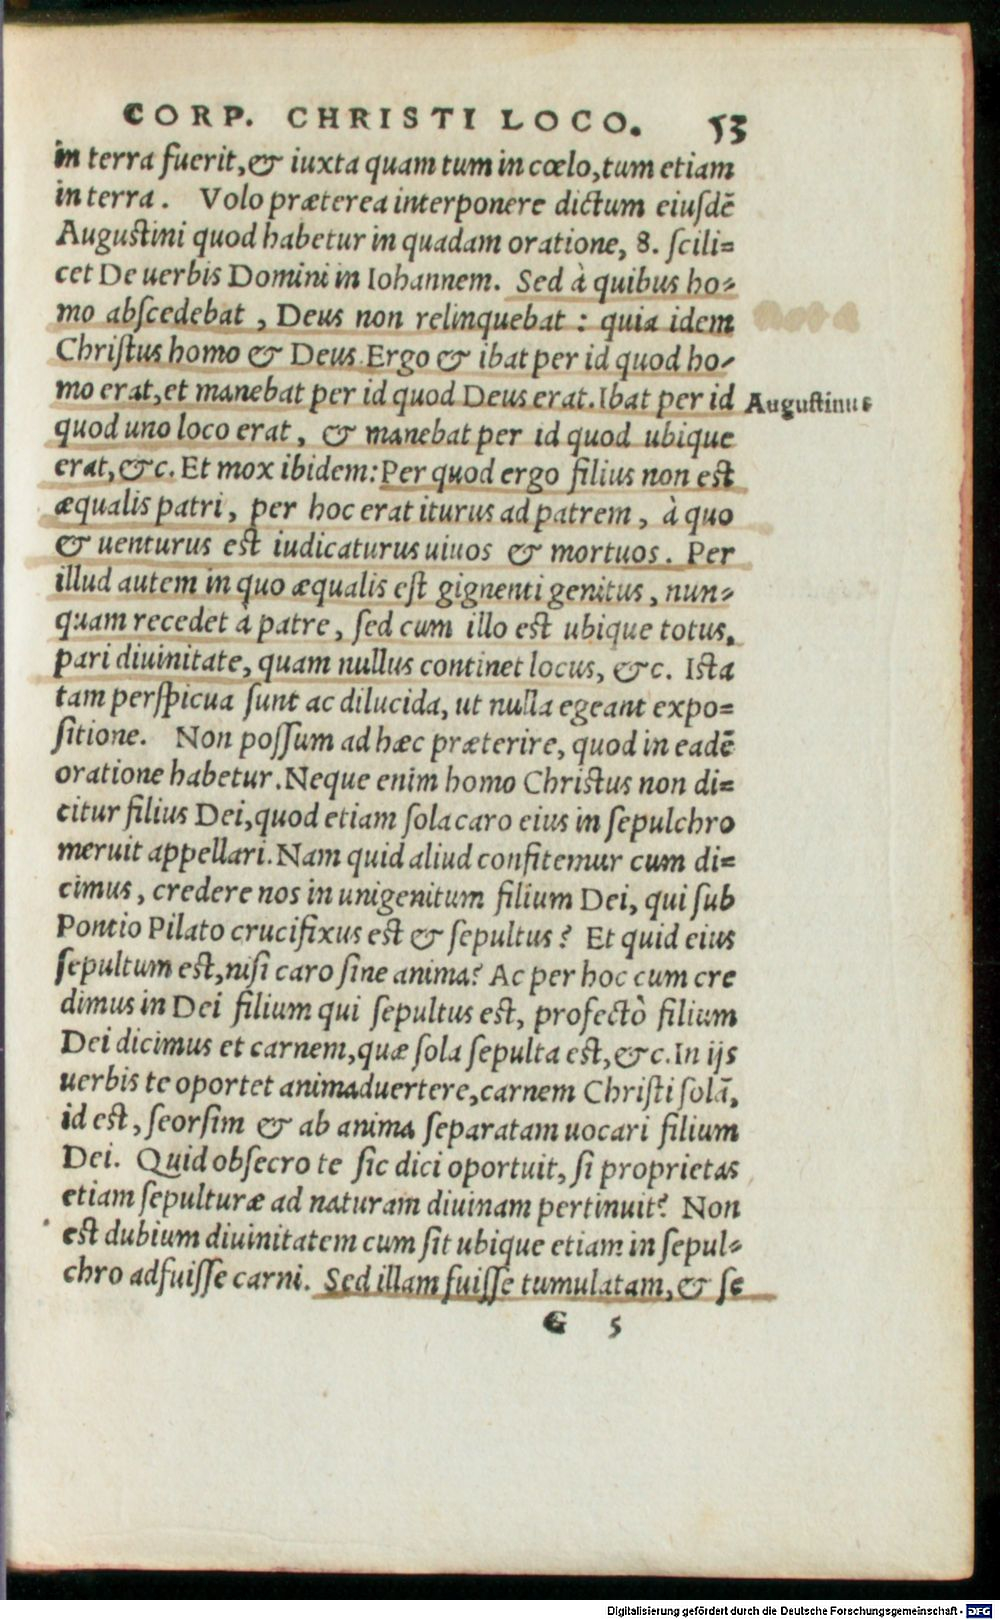 CORP. CHRISTI LOCO. 53
in terra fuerit, & iuxta quam tum in cœlo, tum etiam
in terra. Volo præterea interponere dictum eiusdē
Augustini quod habetur in quadam oratione, 8. scili=
cet De uerbis Domini in Iohannem. Sed à quibus ho=
mo abscedebat, Deus non relinquebat : quia idem
Christus homo & Deus. Ergo & ibat per id quod ho=
mo erat, et manebat per id quod Deus erat. Ibat per id
Augustinus
quod uno loco erat, & manebat per id quod ubique
erat, &c. Et mox ibidem: Per quod ergo filius non est
æqualis patri, per hoc erat iturus ad patrem, à quo
& uenturus est iudicaturus uiuos & mortuos. Per
illud autem in quo æqualis est gignenti genitus, nun=
quam recedet à patre, sed cum illo est ubique totus,
pari diuinitate, quam nullus continet locus, &c. Ista
tam perspicua sunt ac dilucida, ut nulla egeant expo=
sitione. Non possum ad hæc præterire, quod in eadē
oratione habetur. Neque enim homo Christus non di=
citur filius Dei, quod etiam sola caro eius in sepulchro
meruit appellari. Nam quid aliud confitemur cum di=
cimus, credere nos in unigenitum filium Dei, qui sub
Pontio Pilato crucifixus est & sepultus? Et quid eius
sepultum est, nisi caro sine anima? Ac per hoc cum cre
dimus in Dei filium qui sepultus est, profectò filium
Dei dicimus et carnem, quæ sola sepulta est, &c. In ijs
uerbis te oportet animaduertere, carnem Christi solā,
id est, seorsim & ab anima separatam uocari filium
Dei. Quid obsecro te sic dici oportuit, si proprietas
etiam sepulturæ ad naturam diuinam pertinuit? Non
est dubium diuinitatem cum sit ubique etiam in sepul=
chro adfuisse carni. Sed illam fuisse tumulatam, & se
G 5
Digitalisierung gefördert durch die Deutsche Forschungsgemeinschaft - DFG